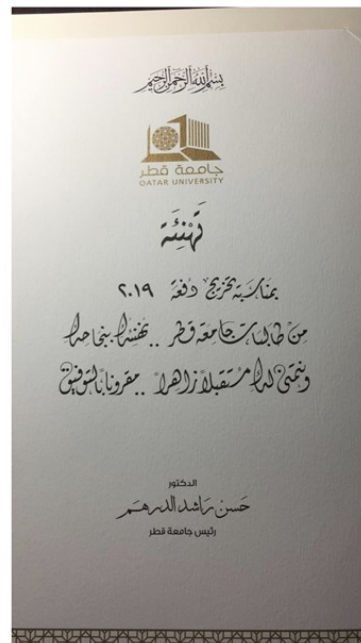 بسم الله الرحمن الرحيم
جامعة قطر
QATAR UNIVERSITY
تهنئة
بمناسبة تخريج دفعة ٢٠١٩
من طالبات جامعة قطر .. نهنئك بنجاحك
ونتمنى لك مستقبلاً زاهراً .. مقروناً بالتوفيق
الدكتور
حسن راشد الدرهم
رئيس جامعة قطر